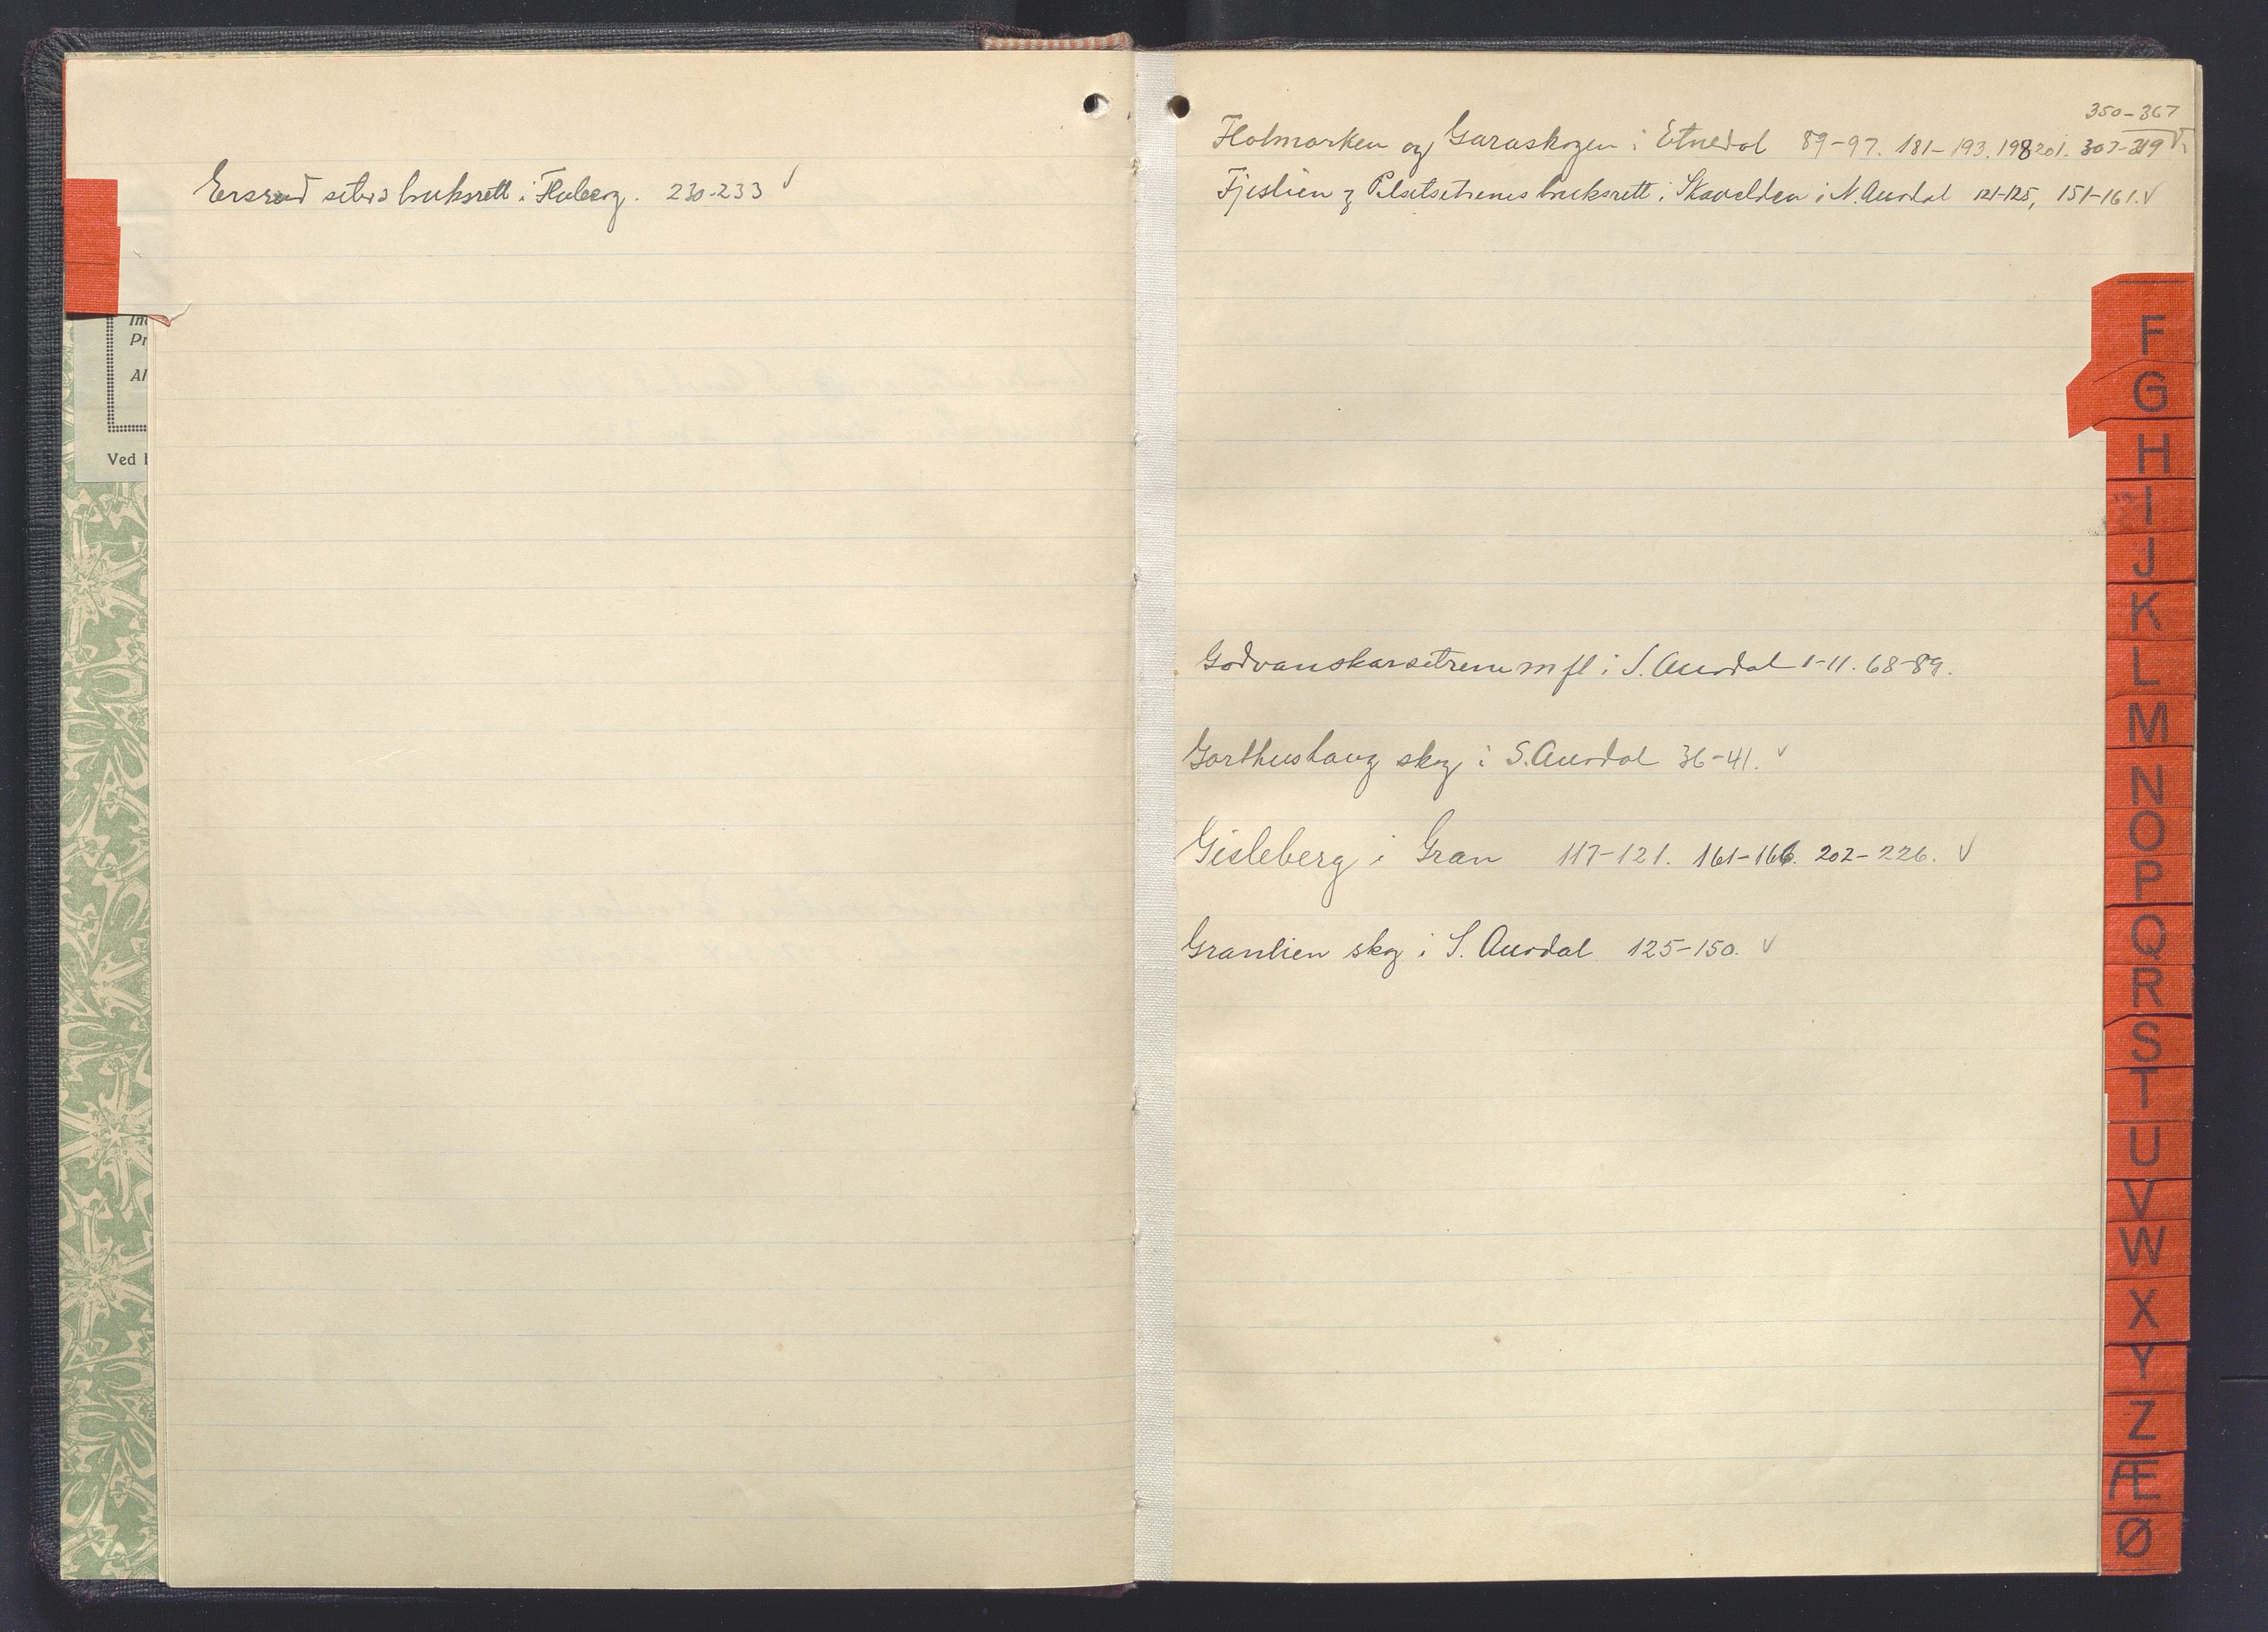 Ersrud seters bruksrett i Fluberg. 230-233 √
Ved
350-367
Flatmarken og Garaskogen i Etnedal 89-97. 181-193. 198 201. 307-319 √
Fjeslien og bruksrett i i N. Aurdal 121-125, 151-161. √
Godvanskarsetrene m fl i S. Aurdal 1-11. 68-89.
Garthushaug skog i S. Aurdal 36-41. √
Gisleberg i Gran 117-121. 161-166. 202-226. √
Granlien skog i S. Aurdal 125-150. √
F
G
H
I
J
K
L
M
N
O
P
Q
R
S
T
U
V
W
X
Y
Z
Æ
Ø